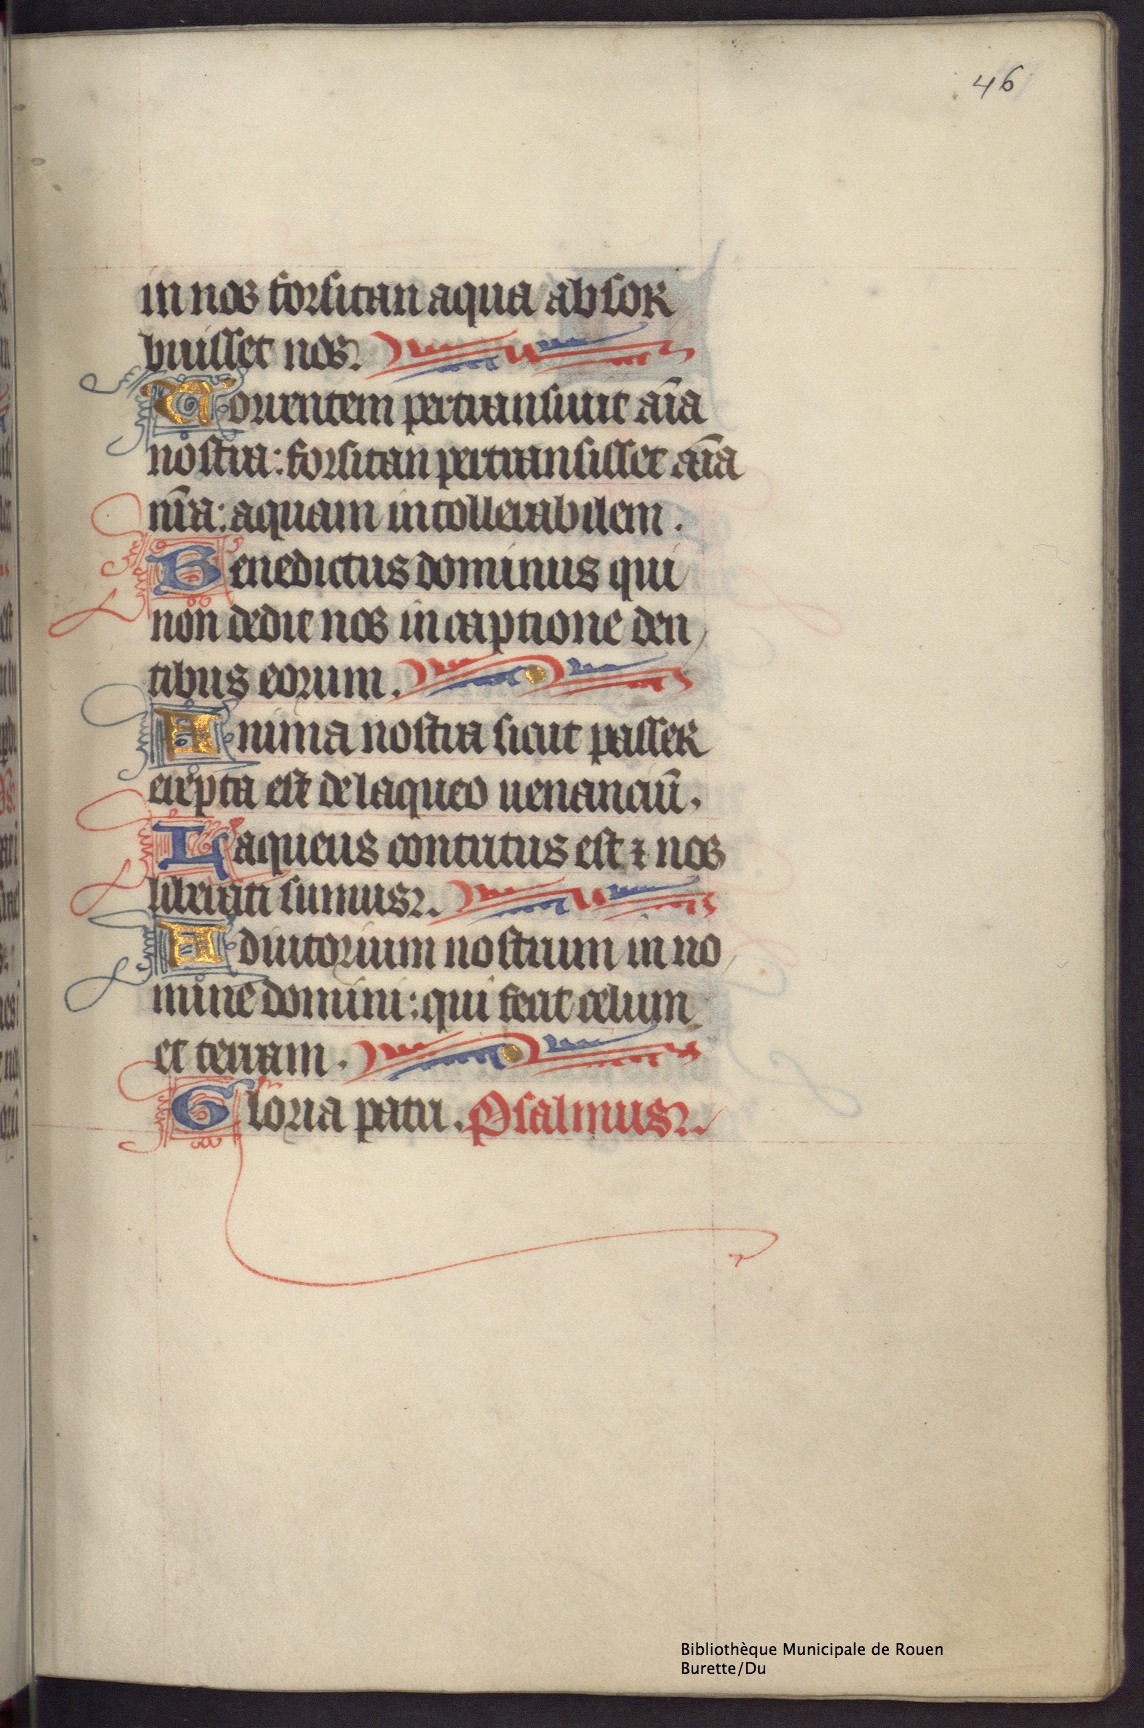 46
in nos forsitan aqua absor
buisset nos.
Torrentem pertransiuit aīa
nostra: forsitan pertransisset aīa
nr̄a: aquam intollerabilem.
Benedictus dominus qui
non dedit nos in captione den
tibus eorum.
Anima nostra sicut passer
erepta est de laqueo uenanciū.
Laqueus contritus est ⁊ nos
liberati sumus.
Adiutorium nostrum in no
mine domini: qui fecit celum
et terram.
Gloria patri. Psalmus.
Bibliothèque Municipale de Rouen
Burette/Du